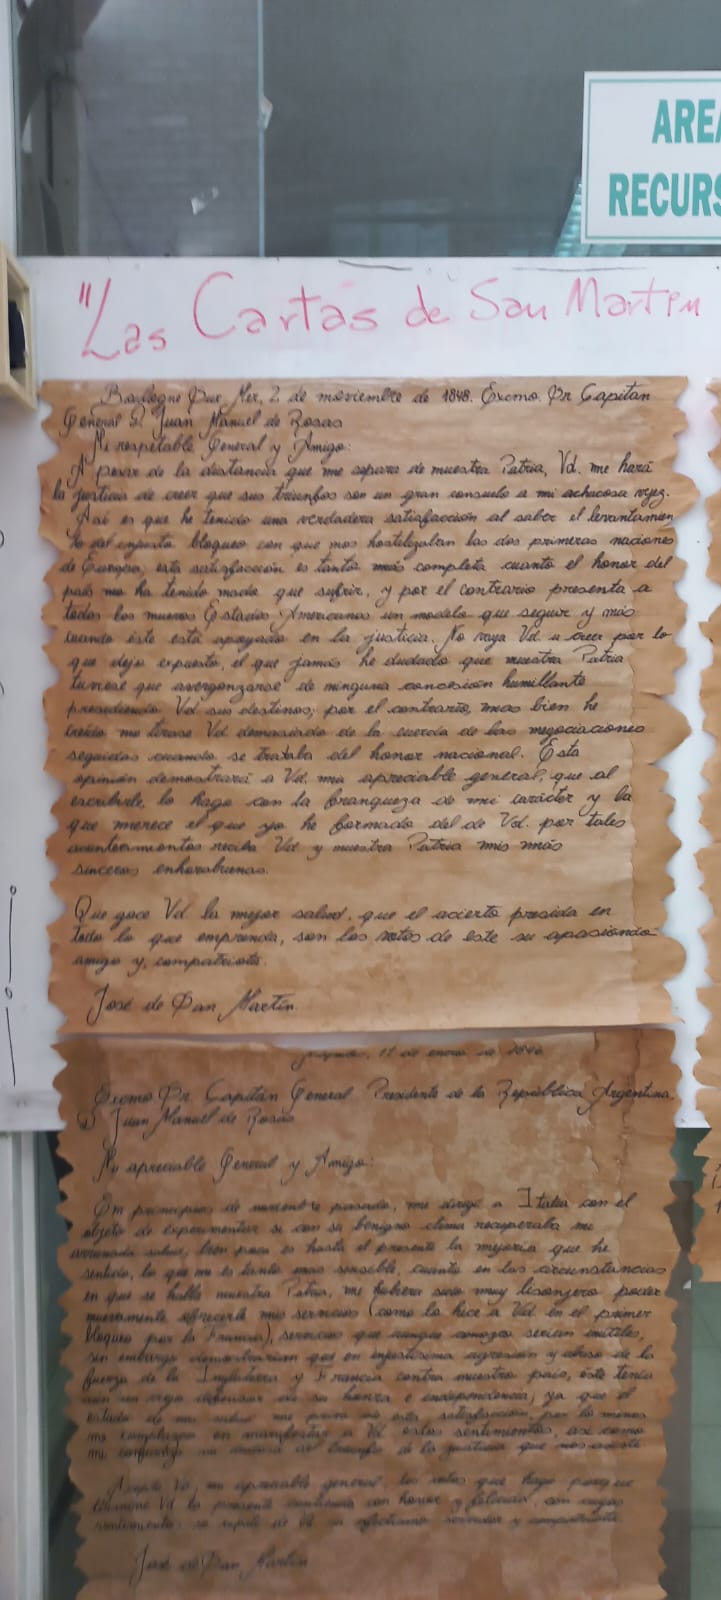 AREA
RECURS
"Las Cartas de San Martin
Boulogne Sur Mer, 2 de noviembre de 1848. Excmo. Sr Capitan
General D. Juan Manuel de Rosas
Mi respetable General y Amigo:
A pesar de la distancia que me separa de nuestra Patria, Vd. me hará
la justicia de creer que sus triunfos son un gran consuelo a mi achacosa vejez.
Así es que he tenido una verdadera satisfacción al saber el levantamien
to del injusto bloqueo con que nos hostilizaban las dos primeras naciones
de Europa; esta satisfacción es tanto más completa cuanto el honor del
país no ha tenido nada que sufrir, y por el contrario presenta a
todos los nuevos Estados Americanos un modelo que seguir y más
cuando éste está apoyado en la justicia. No vaya Vd. a creer por lo
que dejo expuesto, el que jamás he dudado que nuestra Patria
tuviese que avergonzarse de ninguna concesión humillante
presidiendo Vd sus destinos; por el contrario, mas bien he
creído no tirase Vd demasiado de la cuerda de las negociaciones
seguidas cuando se trataba del honor nacional. Esta
opinión demostrará a Vd, mi apreciable general, que al
escribirle, lo hago con la franqueza de mi carácter y la
que merece el que yo he formado del de Vd. por tales
acontecimientos reciba Vd y nuestra Patria mis más
sinceras enhorabuenas.
Que goce Vd la mejor salud, que el acierto presida en
todo lo que emprenda, son los votos de este su apasionado
amigo y, compatriota.
José de San Martín.
11 de enero de 1846
Excmo Sr. Capitán General Presidente de la República Argentina,
D Juan Manuel de Rosas
Mi apreciable General y Amigo:
En principios de noviembre pasado, me dirigí a Italia con el
objeto de experimentar si con su benigno clima recuperaba mi
arruinada salud; bien poca es hasta el presente la mejoría que he
sentido, lo que me es tanto mas sensible, cuanto en las circunstancias
en que se halla nuestra Patria, me hubiera sido muy lisonjero poder
nuevamente ofrecerle mis servicios (como lo hice a Vd. en el primer
bloqueo por la Francia), servicios que aunque conozco serían inútiles,
sin embargo demostrarían que en injustísima agresión y abuso de la
fuerza de la Inglaterra y Francia contra nuestro país, éste tenía
aún un viejo defensor de su honra e independencia; ya que el
estado de mi salud me priva de esta satisfacción, por lo menos
me complazco en manifestar a Vd estos sentimientos, así como
mi confianza no del triunfo de la justicia que nos asiste
Acepte Vd, mi apreciable general, los votos que hago porque
termine Vd la presente contienda con honor y felicidad, con cuyos
sentimientos se repite de Vd su afectísimo servidor y compatriota.
José de San Martín